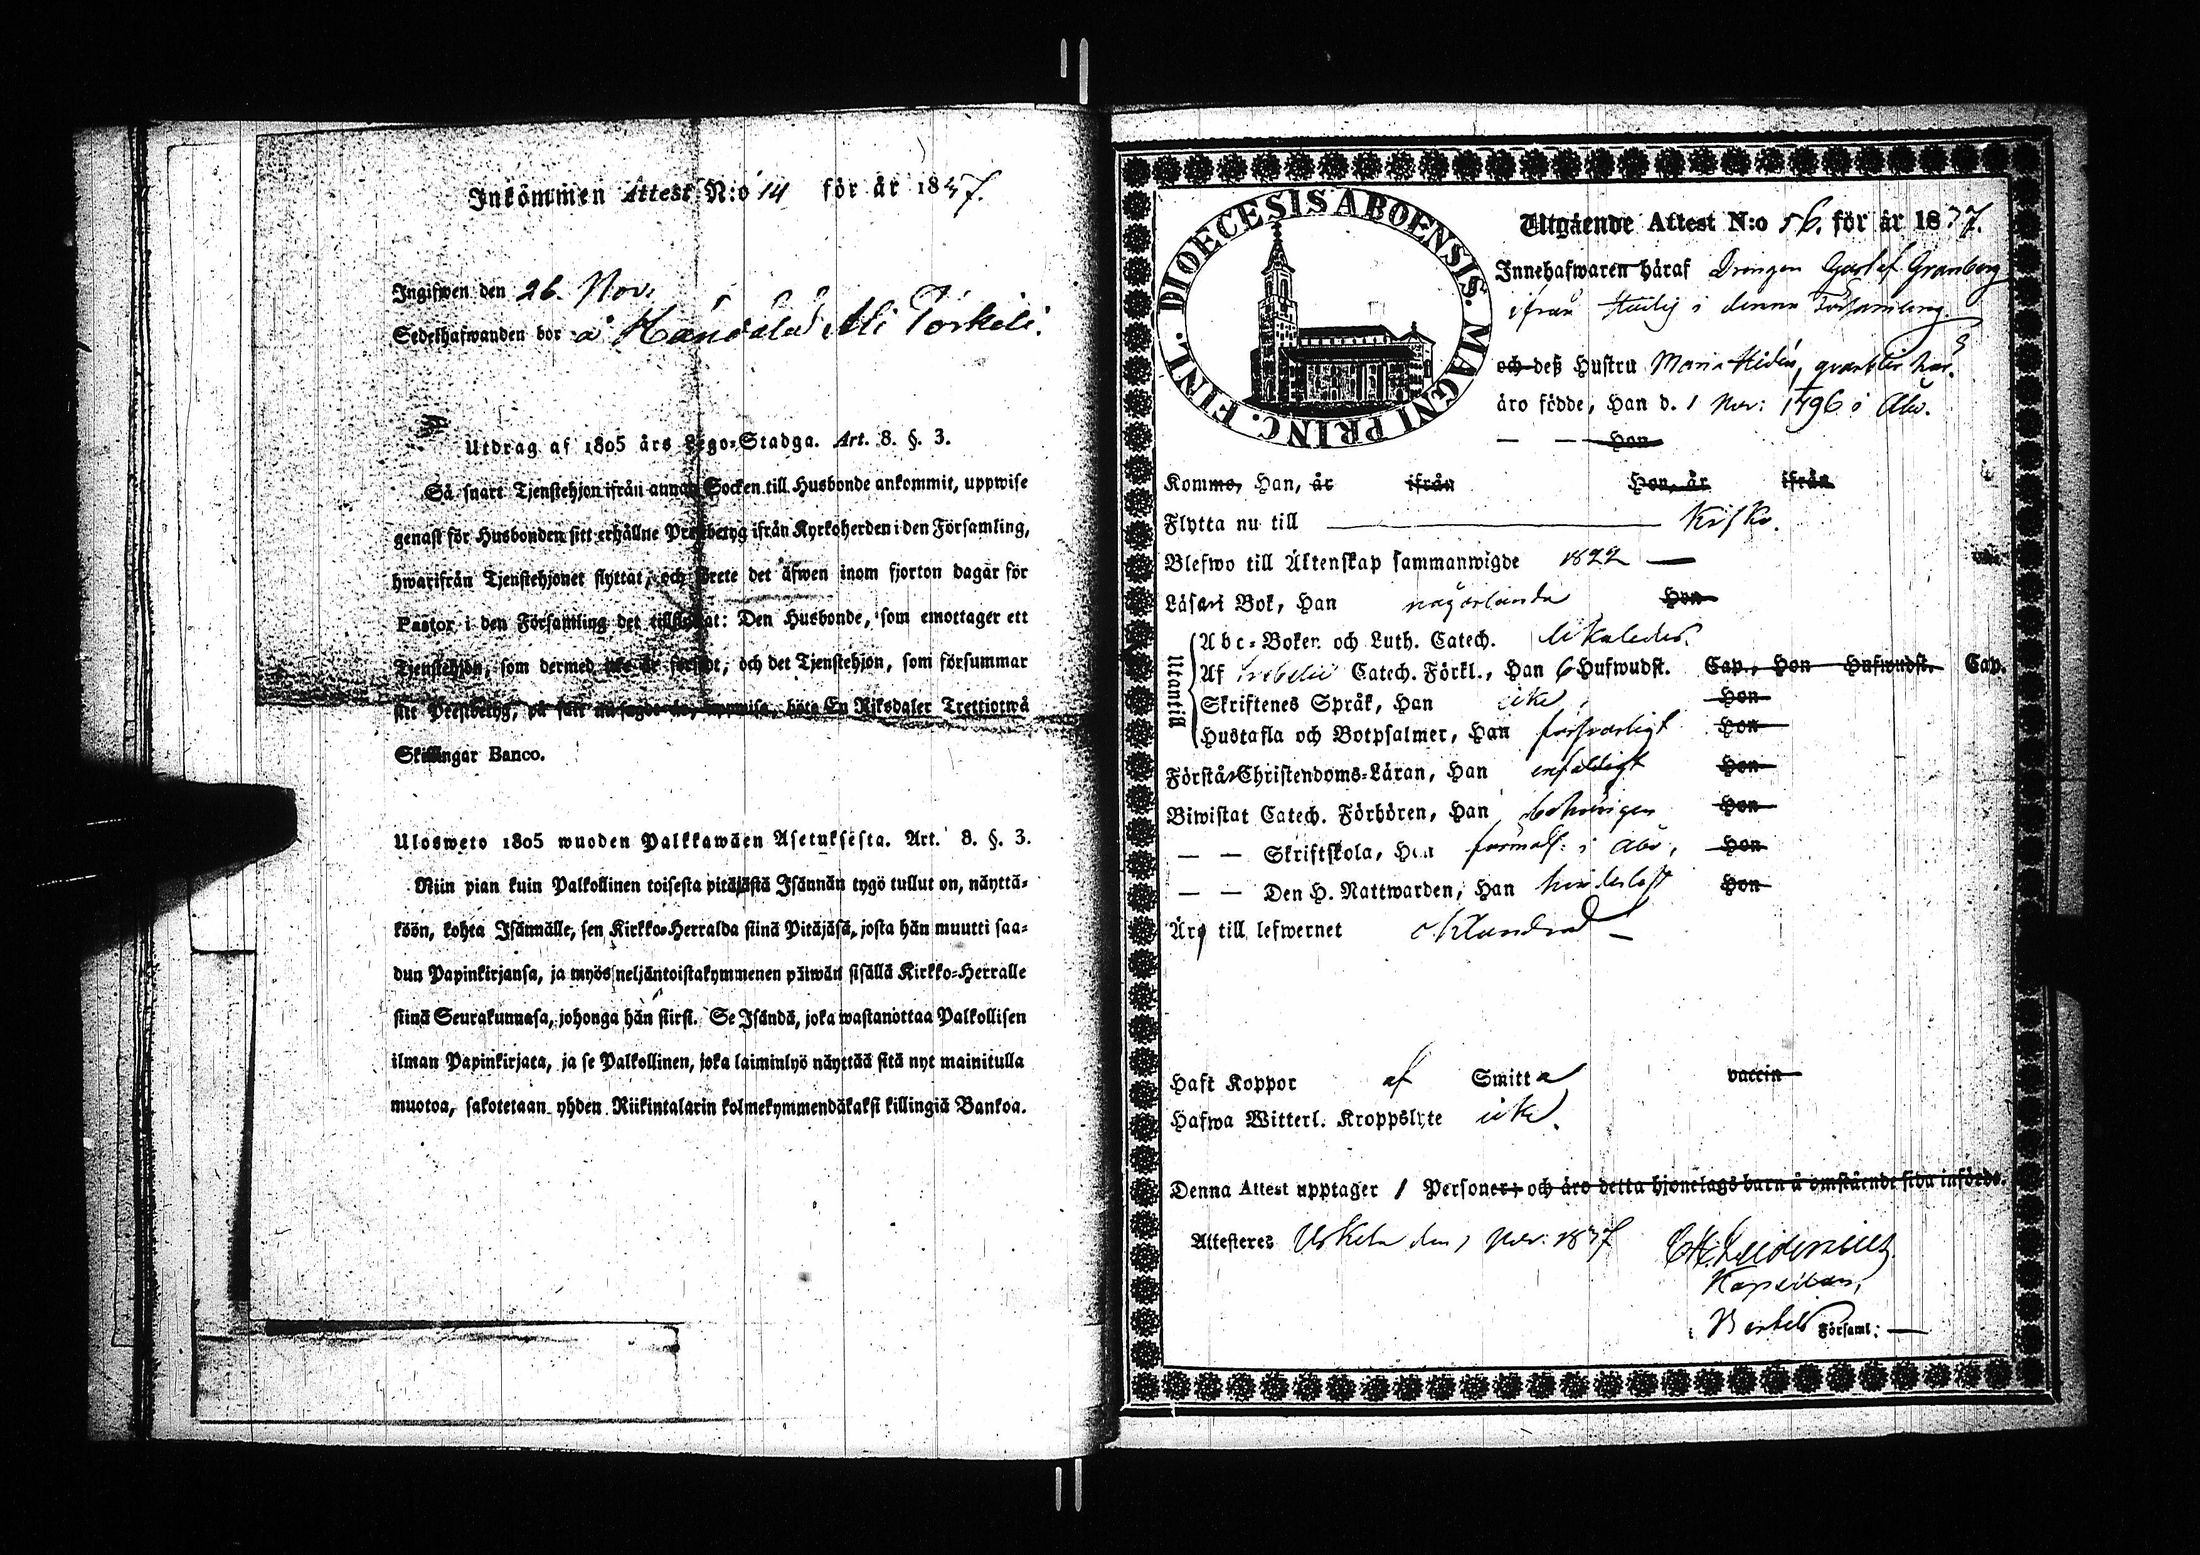 Inkommen Attest N:o 14 för år 1837.
Ingifwen den 26. Nov.
Sedelhafwanden bor å
Utdrag af 1805 års Lego-Stadga. Art. 8. §. 3.
Så snart Tjenstehjon ifrån annan Socken till Husbonde ankommit, uppwise
genast för Husbonden sitt erhållne Prestbetyg ifrån Kyrkoherden i den Församling,
hwarifrån Tjenstehjonet flyttat, och
det äfwen inom fjorton dagar för
Pastor i den Församling det
Den Husbonde, som emottager ett
Tjenstehjon, som dermed
och det Tjenstehjon, som försummar
Prestbetyg, på sätt
böte En Riksdaler Trettiotwå
Skillingar Banco.
Ulosweto 1805 wuoden Palkkawäen Asetuksesta. Art. 8. §. 3.
Niin pian kuin Palkollinen toisesta pitäjästä Isännän tygö tullut on, näyttä-
köön, kohta Isännälle, sen Kirkko-Herralda siinä Pitäjäsä, josta hän muutti saa-
dun Papinkirjansa, ja myös neljäntoistakymmenen päiwän sisällä Kirkko-Herralle
siinä Seurakunnasa, johonga hän siirsi. Se Isändä, joka wastanottaa Palkollisen
ilman Papinkirjata, ja se Palkollinen, joka laiminlyö näyttää sitä nyt mainitulla
muotoa, sakotetaan yhden Riikintalarin kolmekymmendäkaksi killingiä Bankoa.
DIOECESIS ABOENSIS. MAGNI PRINC. FINL.
Utgående Attest N:o 56. för år 1837.
Innehafwaren häraf Drengen Gustaf Granberg
ifrån
i denna Församling.
och deß Hustru Maria Hidén, qvarblir här.
äro födde, Han d. 1 Nov: 1796 i Åbo.
— — Hon
Kommo, Han, år ifrån Hon, år ifrån
Flytta nu till Kisko.
Blefwo till Äktenskap sammanwigde 1822 —
Läsa i Bok, Han någorlunda Hon
Utantill
Abc-Boken och Luth. Catech. likaledes.
Af Svebelii Catech. Förkl., Han 6 Hufwudst. Cap., Hon Hufwudst. Cap.
Skriftenes Språk, Han icke, Hon
Hustafla och Botpsalmer, Han försvarligt Hon
Förstå Christendoms-Läran, Han enfaldigt Hon
Biwistat Catech. Förhören, Han behörigen Hon
— — Skriftskola, Han förmodl. i Åbo, Hon
— — Den H. Nattwarden, Han hinderlöst Hon
Äro till lefwernet oklandrad —
Haft Koppor af Smitta vaccin
Hafwa Witterl. Kroppslyte icke.
Denna Attest upptager 1 Personer; och äro detta hjonelags barn å omstående sida införde.
Attesteres Uskela den 1 Nov: 1837
Kapellan,
i
Församl: —